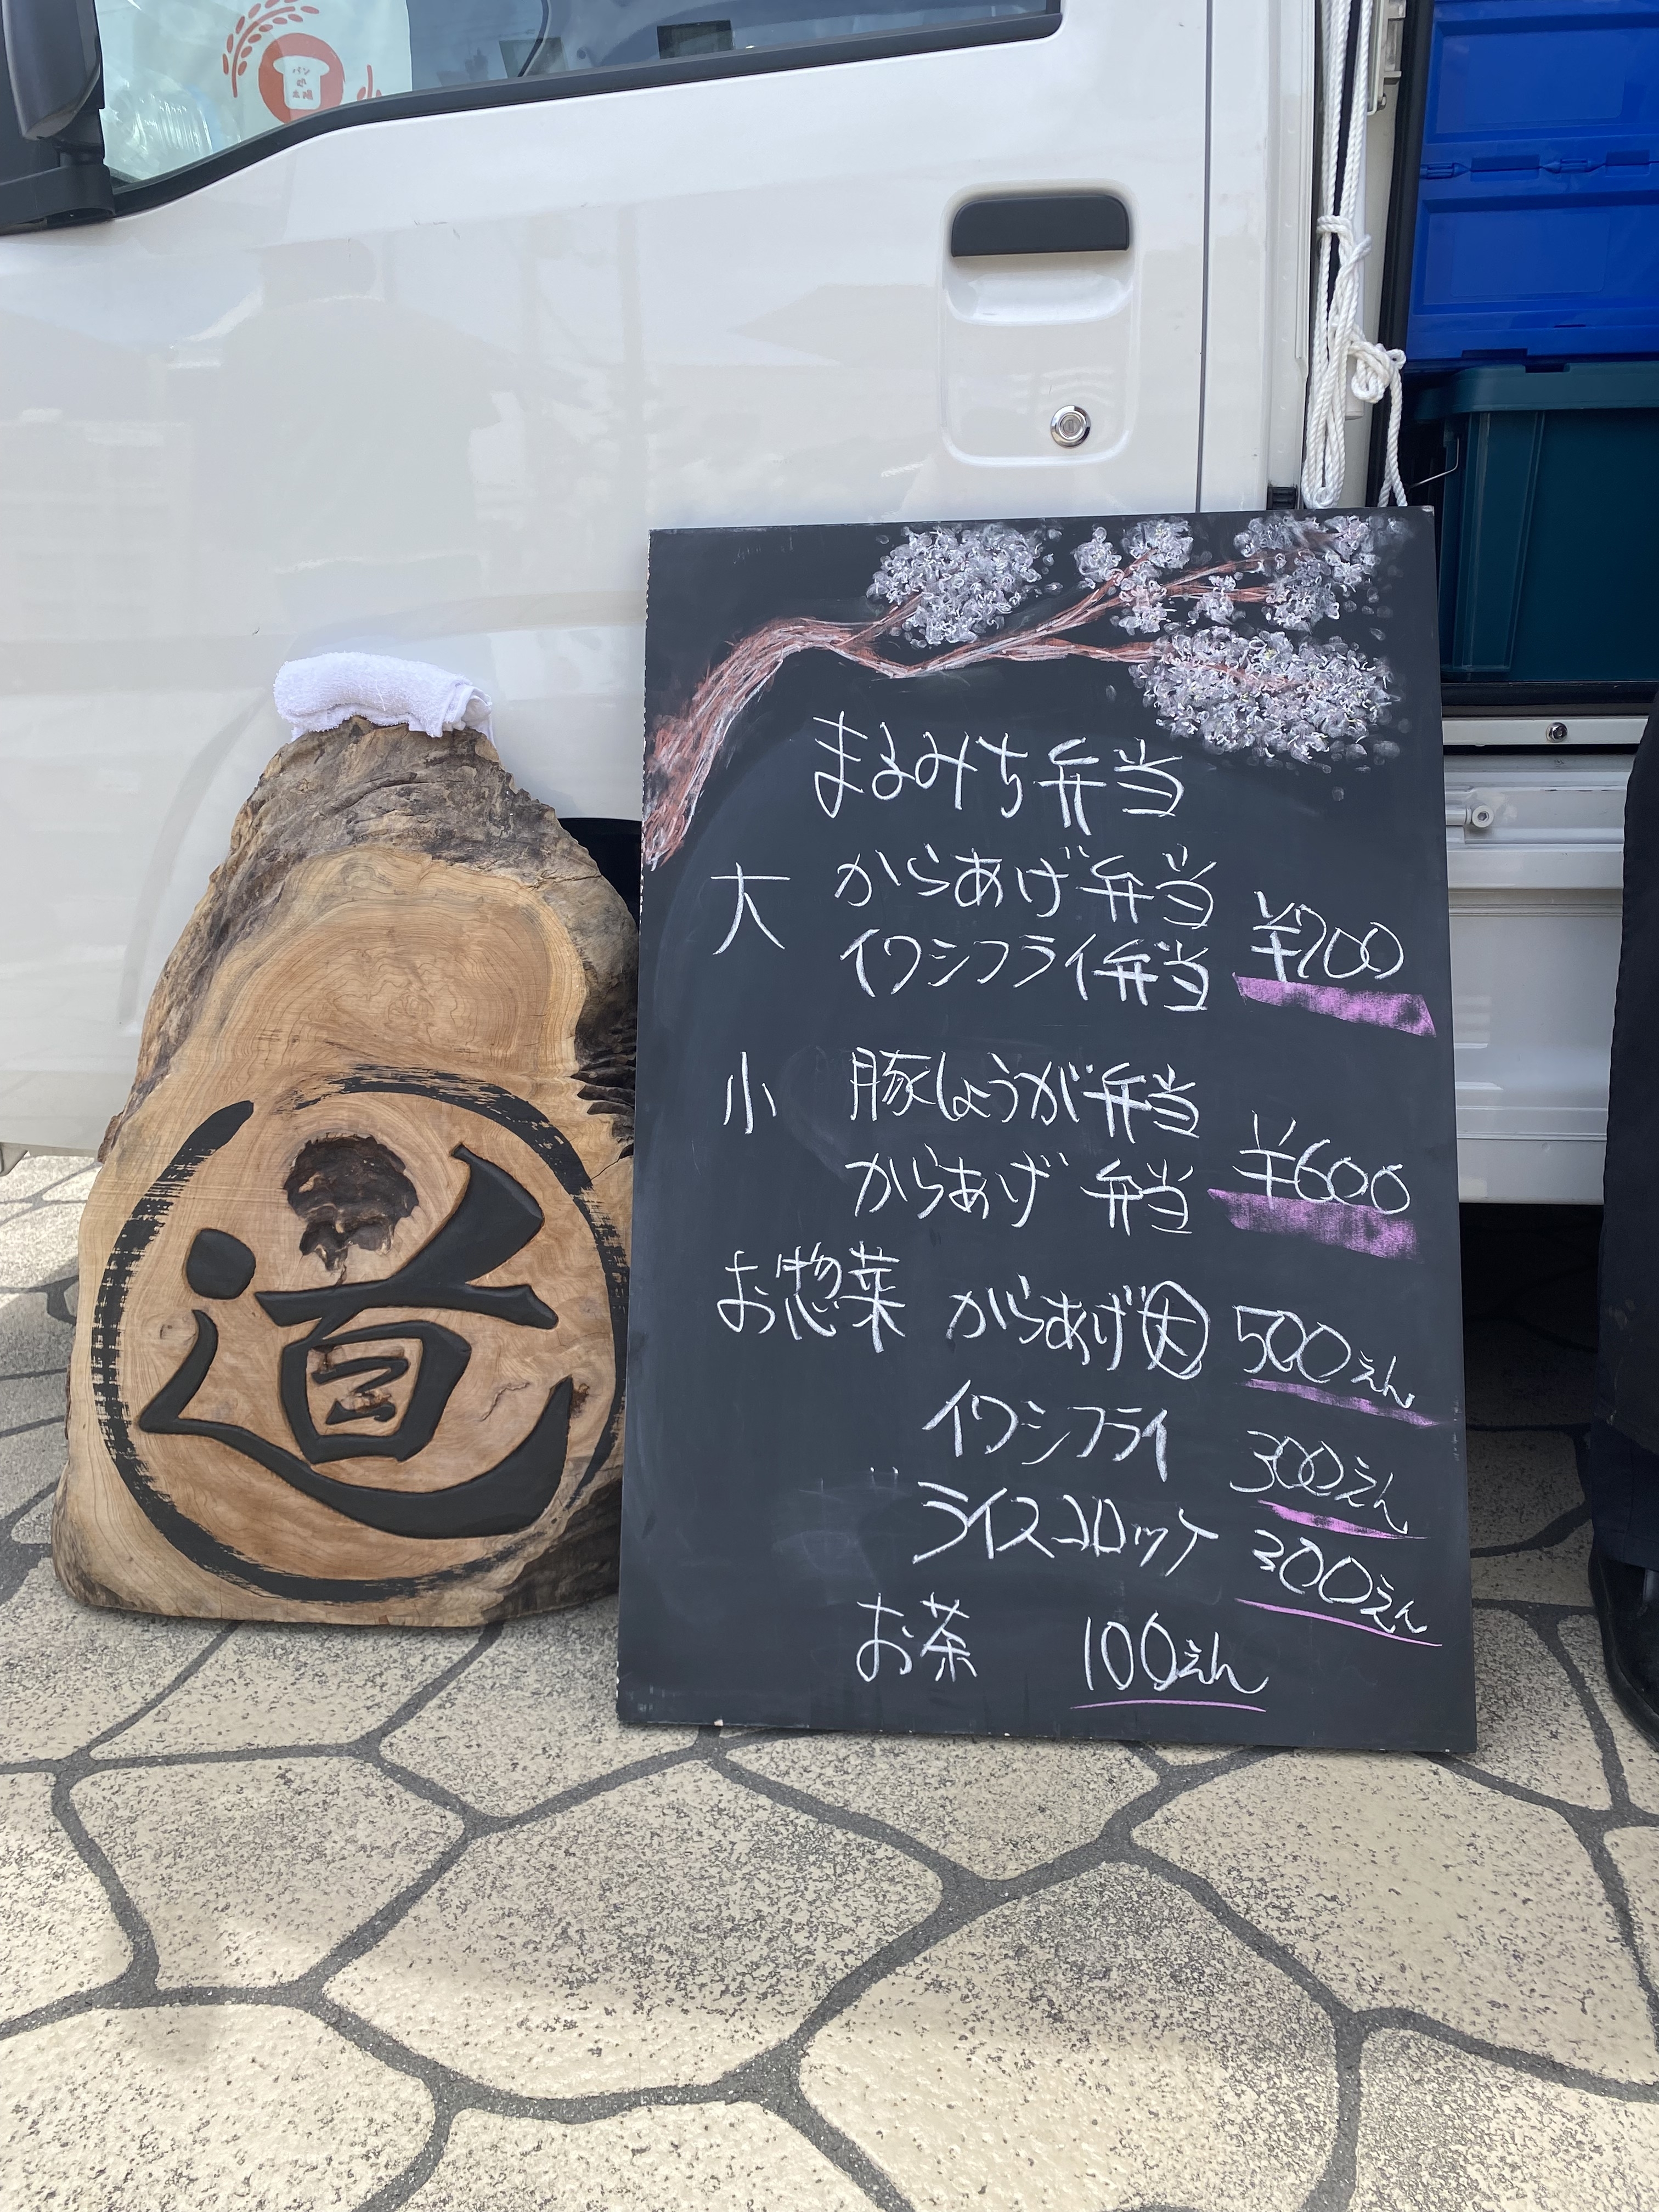 道
まるみち弁当
大 からあげ弁当
イワシフライ弁当 ¥700
小 豚しょうが弁当
からあげ弁当 ¥600
お惣菜 からあげ大 500えん
イワシフライ 300えん
ライスコロッケ 300えん
お茶 100えん